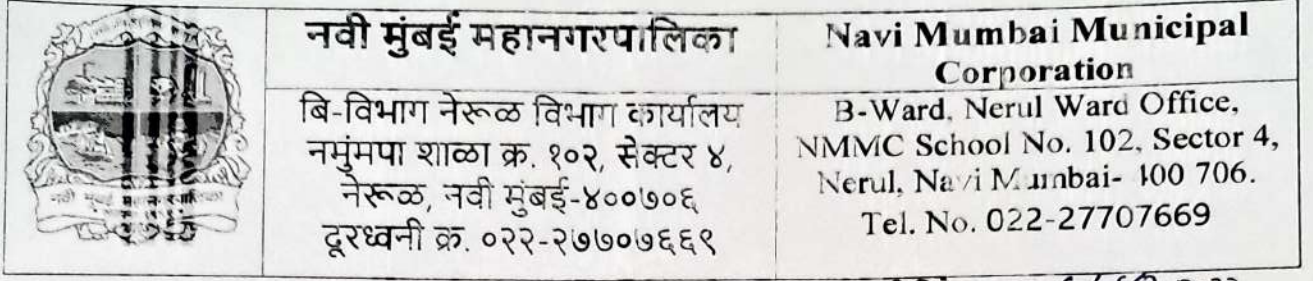 नवी मुंबई महानगरपालिका
बि-विभाग नेरूळ विभाग कार्यालय
नमुंमपा शाळा क्र. १०२, सेक्टर ४,
नेरूळ, नवी मुंबई-४००७०६
दूरध्वनी क्र. ०२२-२७७०७६६९
Navi Mumbai Municipal
Corporation
B-Ward, Nerul Ward Office,
NMMC School No. 102, Sector 4,
Nerul, Navi Mumbai- 400 706.
Tel. No. 022-27707669